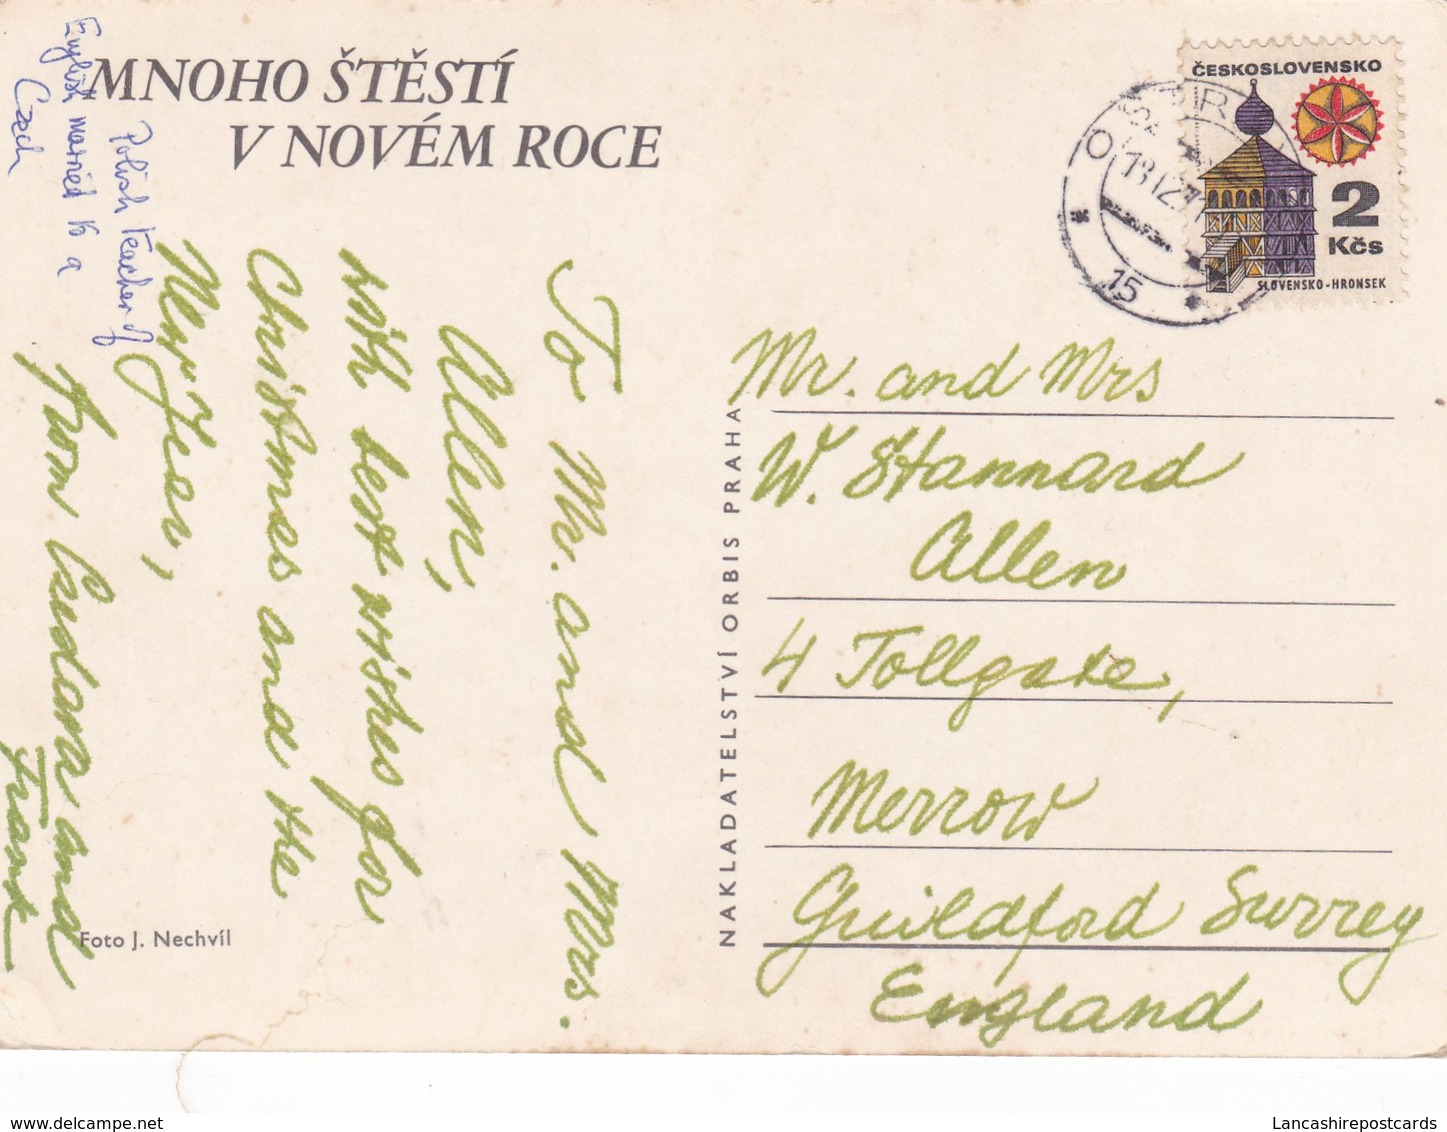 MNOHO ŠTĚSTÍ
V NOVÉM ROCE
Polish teacher of
English married to a
Czech
To Mr. and Mrs.
Allen,
with best wishes for
Christmas and the
New Year,
from Ludana and
Frank
Foto J. Nechvíl
NAKLADATELSTVÍ ORBIS PRAHA
ČESKOSLOVENSKO
2
Kčs
SLOVENSKO-HRONSEK
15
Mr. and Mrs
W. Stannard
Allen
4 Tollgate,
Merrow
Guildford Surrey
England
Lancashirepostcards